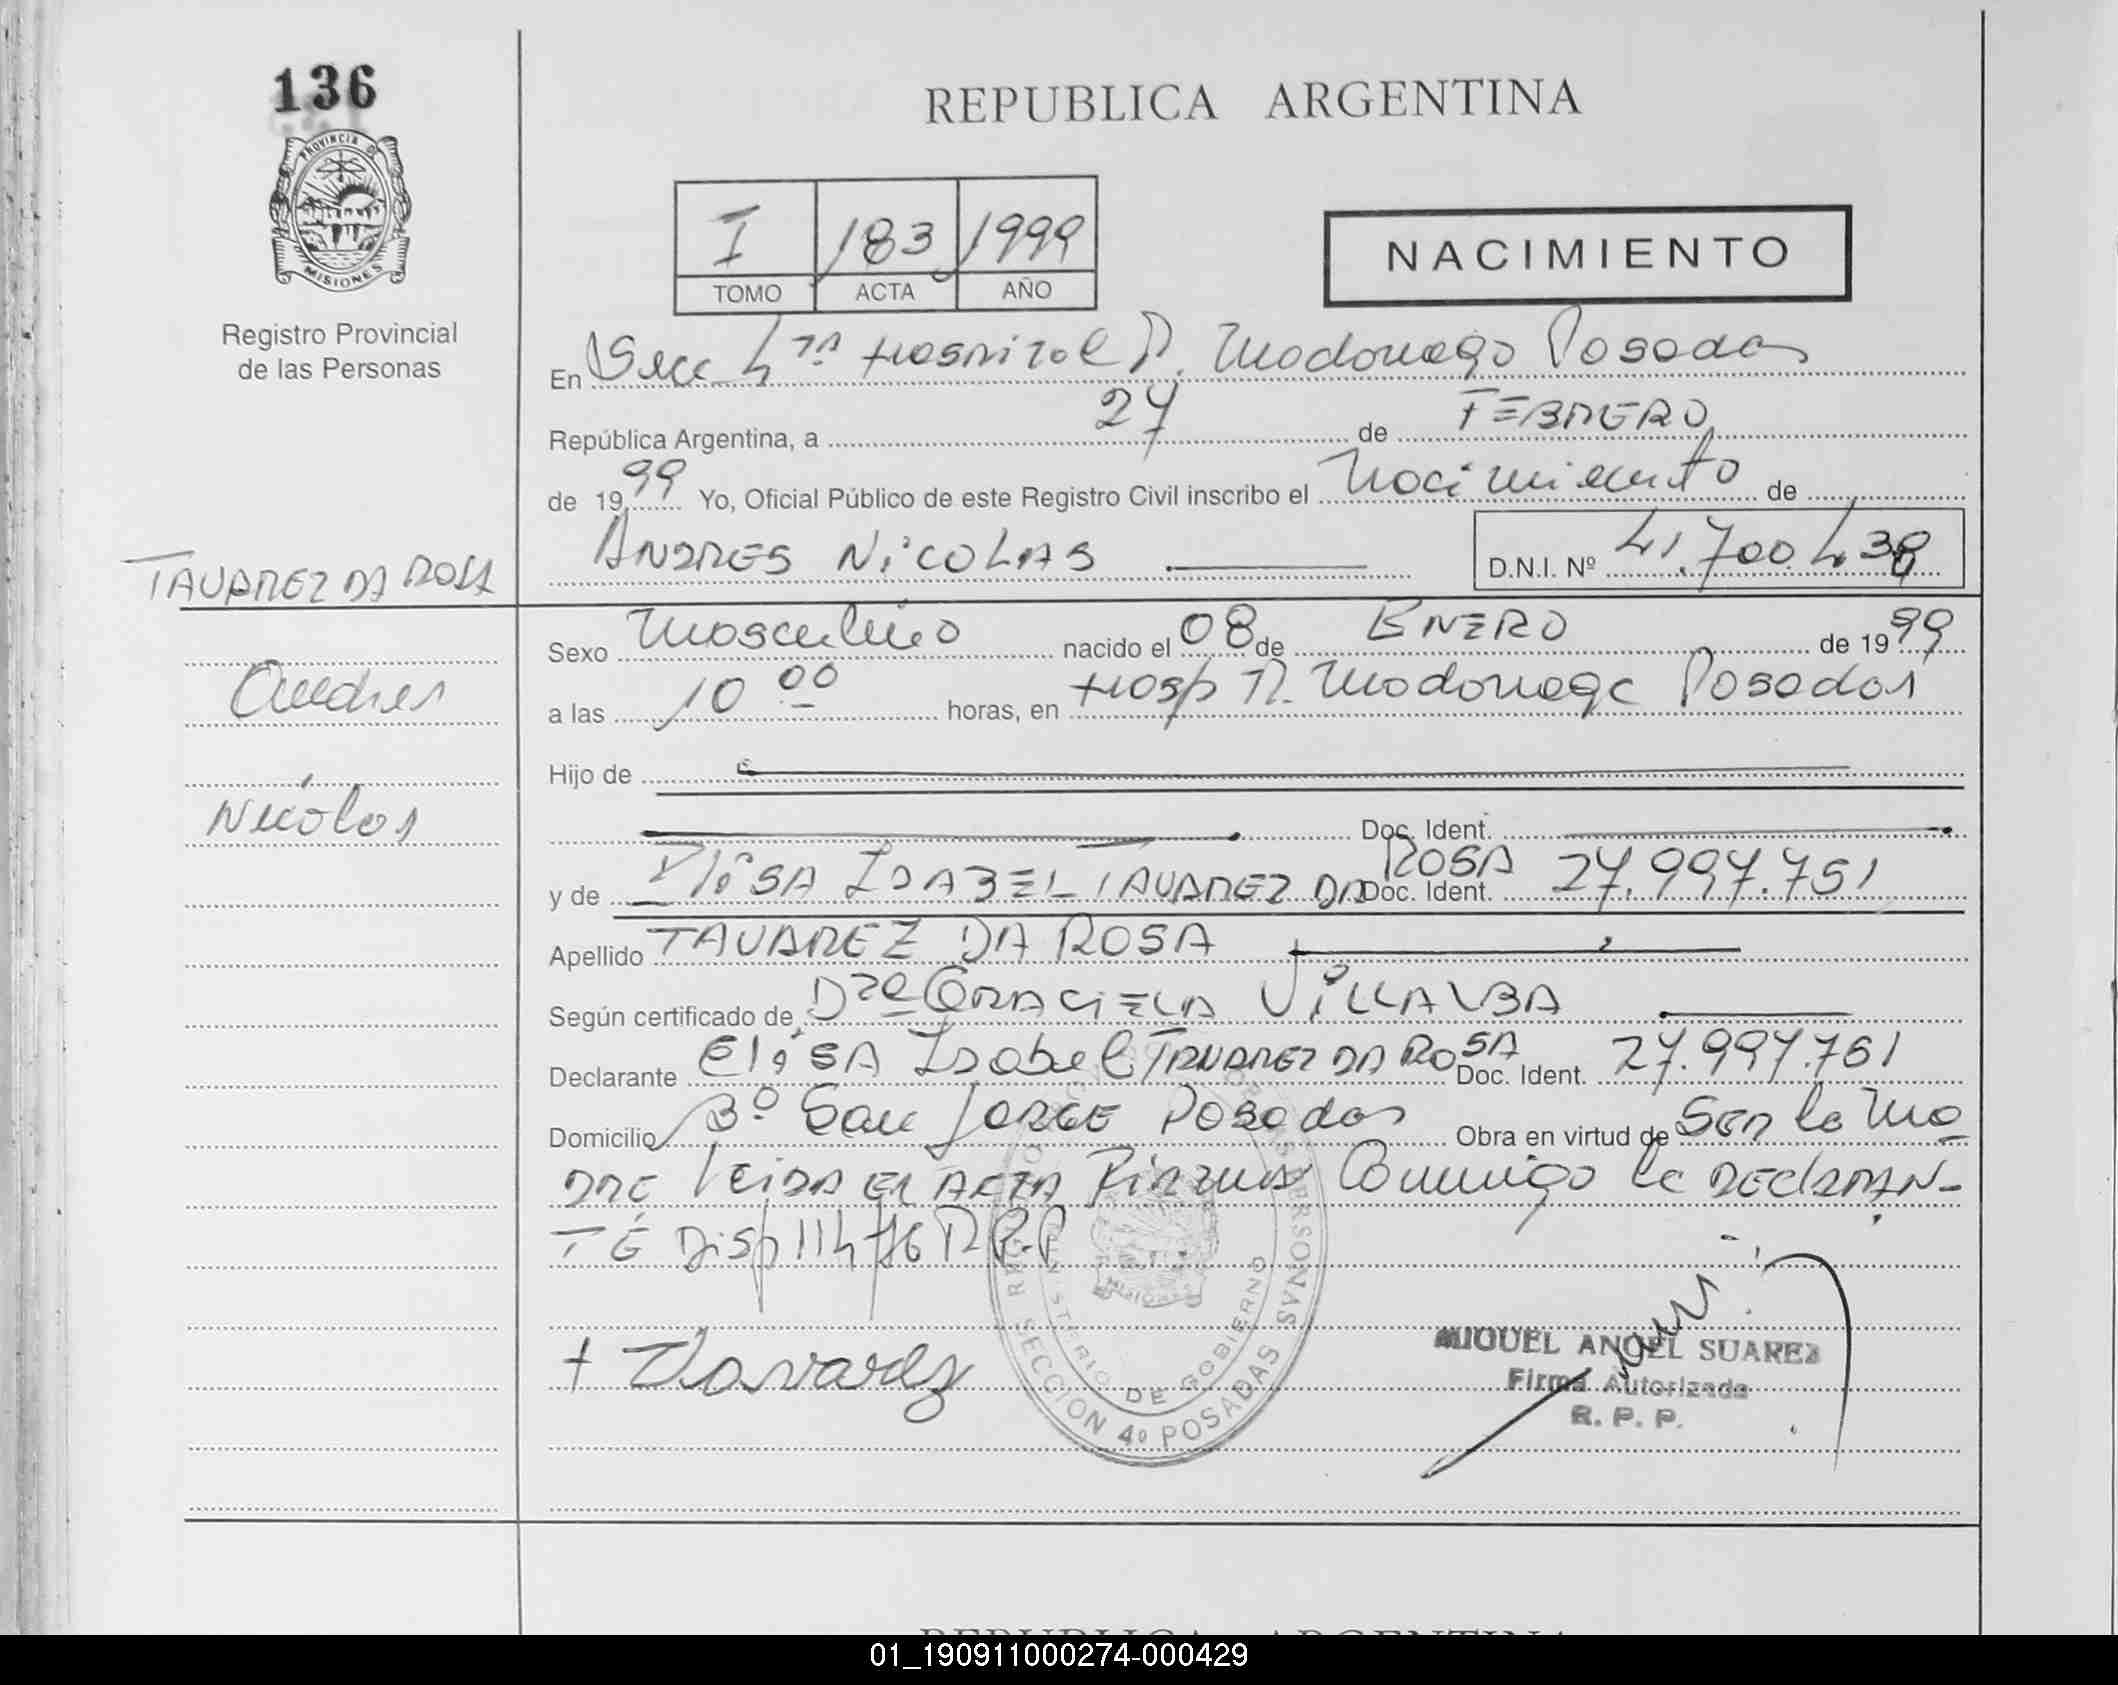 136
PROVINCIA DE
MISIONES
Registro Provincial
de las Personas
REPUBLICA ARGENTINA
I 183 1999
TOMO ACTA AÑO
NACIMIENTO
En Secc 4ta Hospital R. Madariaga Posadas
República Argentina, a 27 de FEBRERO
de 1999 Yo, Oficial Público de este Registro Civil inscribo el Nacimiento de
ANDRES NICOLAS D.N.I. Nº 41.700.438
TAVAREZ DA ROSA
Andres
Nicolas
Sexo Masculino nacido el 08 de ENERO de 1999
a las 10 00 horas, en Hosp R. Madariaga Posadas
Hijo de
Doc. Ident.
y de Elisa ISABEL TAVAREZ DA ROSA Doc. Ident. 27.997.751
Apellido TAVAREZ DA ROSA
Según certificado de Dra GRACIELA VILLALBA
Declarante Elisa Isabel TAVAREZ DA ROSA Doc. Ident. 27.997.751
Domicilio Bº San JORGE Posadas Obra en virtud de Ser la Ma
DRE Leida el ACTA Firma Conmigo la DECLARAN-
TE Disp 114/76 R.P.P
+ Tavarez
MINISTERIO DE GOBIERNO
SECCION 4º POSADAS
MIGUEL ANGEL SUAREZ
Firma Autorizada
R. P. P.
REPUBLICA ARGENTINA
01_190911000274-000429